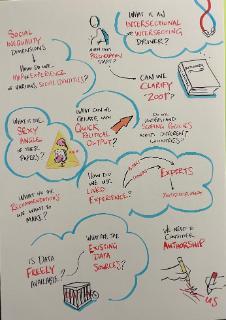 SOCIAL
INEQUALITY
DIMENSIONS
HOW DO WE
MAP EXPERIENCE
OF VARIOUS SOCIAL IDENTITIES?
WHAT IS AN
INTERSECTIONAL
OR INTERSECTING
DRIVER?
CAN WE
CLARIFY
"2001"?
WHAT IS THE
SEXY
ANGLE
OF THESE
PAPERS?
WHAT CAN WE
CREATE WITH
QUICK
POLITICAL
OUTPUT?
DO WE
UNDERSTAND
DIFFERENT
COUNTRIES?
WHAT ARE THE
RECOMMENDATIONS
WE WANT TO
MAKE?
HOW DO
WE USE
LIVED
EXPERIENCE?
EXPERTS
IS DATA
FREELY
AVAILABLE?
WHAT ARE THE
EXISTING
DATA
SOURCES?
WE NEED TO
CONSIDER
AUTHORSHIP
US